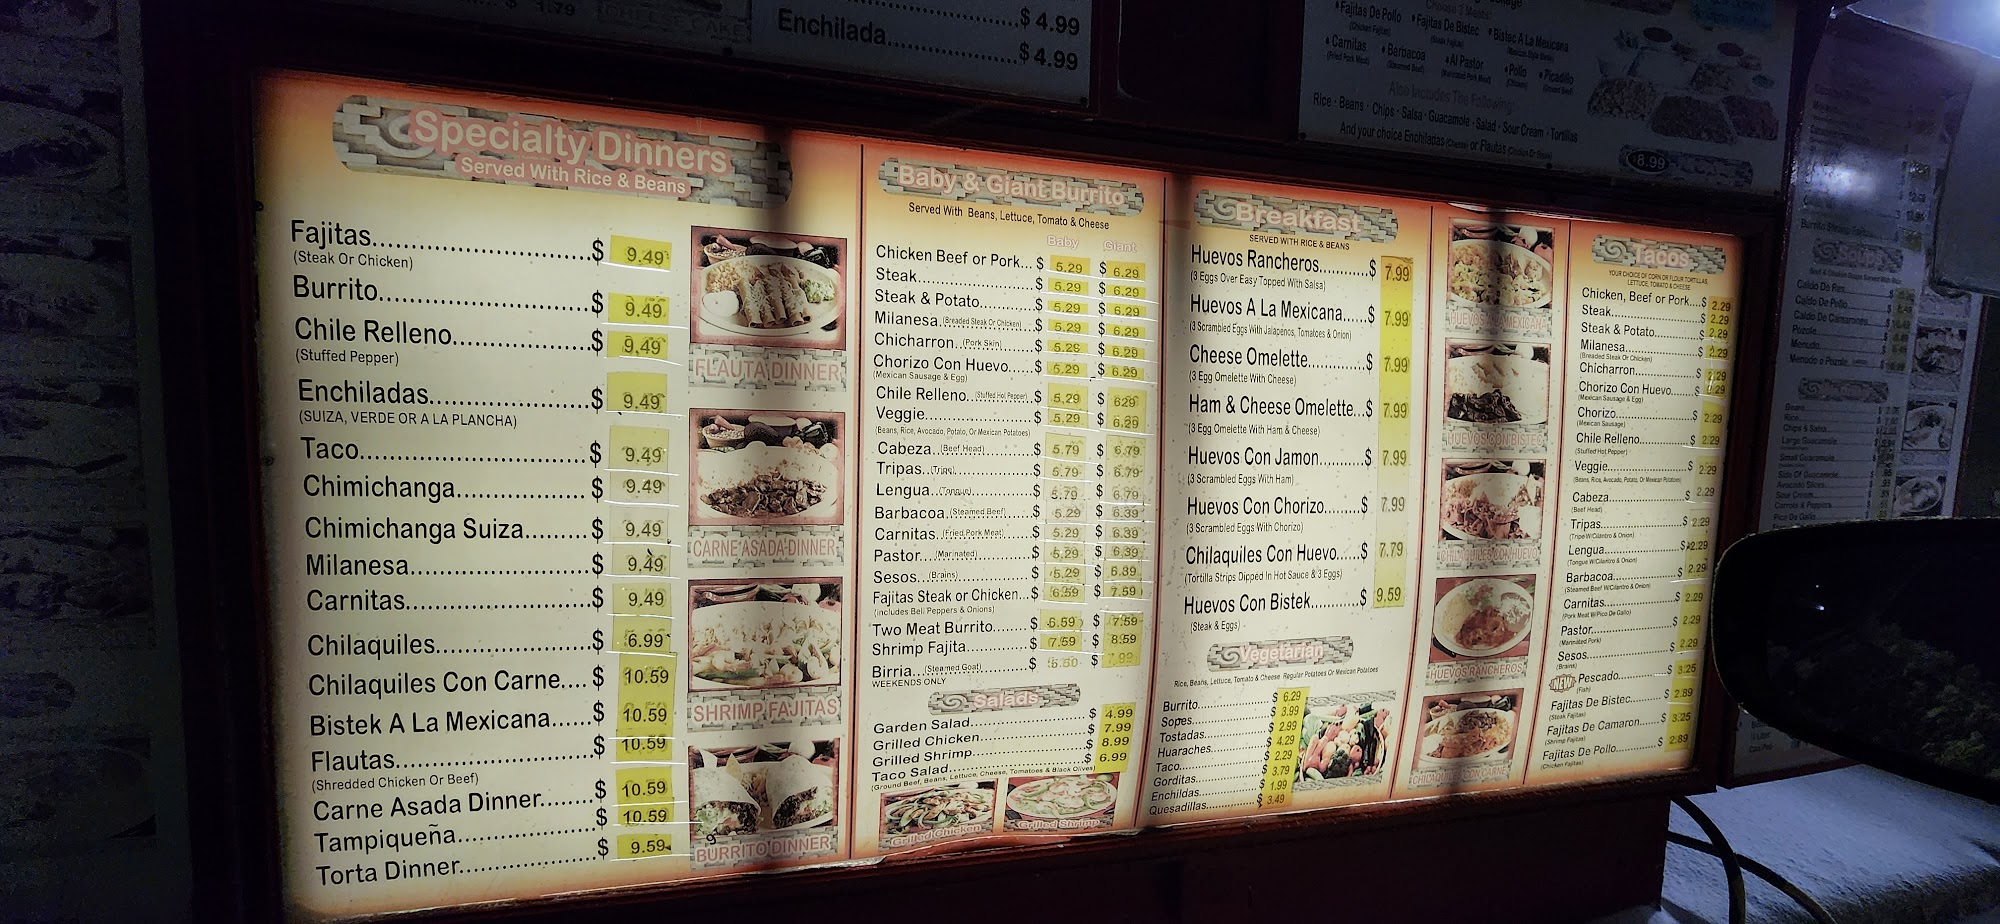 $ 1.79
$ 4.99
Enchilada $ 4.99
Choose 3 Meats:
• Fajitas De Pollo • Fajitas De Bistec • Bistec A La Mexicana
(Chicken Fajitas) (Steak Fajitas) (Mexican Style Steak)
• Carnitas • Barbacoa • Al Pastor • Pollo • Picadillo
(Fried Pork Meat) (Steamed Beef) (Marinated Pork Meat) (Chicken) (Ground Beef)
Also Includes The Following:
Rice · Beans · Chips · Salsa · Guacamole · Salad · Sour Cream · Tortillas
And your choice Enchiladas (Cheese) or Flautas (Chicken Or Steak)
8.99
Specialty Dinners
Served With Rice & Beans
Fajitas $ 9.49
(Steak Or Chicken)
Burrito $ 9.49
Chile Relleno $ 9.49
(Stuffed Pepper)
Enchiladas $ 9.49
(SUIZA, VERDE OR A LA PLANCHA)
Taco $ 9.49
Chimichanga $ 9.49
Chimichanga Suiza $ 9.49
Milanesa $ 9.49
Carnitas $ 9.49
Chilaquiles $ 6.99
Chilaquiles Con Carne $ 10.59
Bistek A La Mexicana $ 10.59
Flautas $ 10.59
(Shredded Chicken Or Beef)
Carne Asada Dinner $ 10.59
Tampiqueña $ 10.59
Torta Dinner $ 9.59
FLAUTA DINNER
CARNE ASADA DINNER
SHRIMP FAJITAS
BURRITO DINNER
Baby & Giant Burrito
Served With Beans, Lettuce, Tomato & Cheese
Baby Giant
Chicken Beef or Pork $ 5.29 $ 6.29
Steak $ 5.29 $ 6.29
Steak & Potato $ 5.29 $ 6.29
Milanesa (Breaded Steak Or Chicken) $ 5.29 $ 6.29
Chicharron (Pork Skin) $ 5.29 $ 6.29
Chorizo Con Huevo $ 5.29 $ 6.29
(Mexican Sausage & Egg)
Chile Relleno (Stuffed Hot Pepper) $ 5.29 $ 6.29
Veggie $ 5.29 $ 6.29
(Beans, Rice, Avocado, Potato, Or Mexican Potatoes)
Cabeza (Beef Head) $ 5.79 $ 6.79
Tripas (Tripe) $ 5.79 $ 6.79
Lengua (Tongue) $ 5.79 $ 6.79
Barbacoa (Steamed Beef) $ 5.29 $ 6.39
Carnitas (Fried Pork Meat) $ 5.29 $ 6.39
Pastor (Marinated) $ 5.29 $ 6.39
Sesos (Brains) $ 5.29 $ 6.89
Fajitas Steak or Chicken $ 6.59 $ 7.59
(Includes Bell Peppers & Onions)
Two Meat Burrito $ 6.59 $ 7.59
Shrimp Fajita $ 7.59 $ 8.59
Birria (Steamed Goat) $ $ 7.99
WEEKENDS ONLY
Salads
Garden Salad $ 4.99
Grilled Chicken $ 7.99
Grilled Shrimp $ 8.99
Taco Salad $ 6.99
(Ground Beef, Beans, Lettuce, Cheese, Tomatoes & Black Olives)
Grilled Chicken Grilled Shrimp
Breakfast
SERVED WITH RICE & BEANS
Huevos Rancheros $ 7.99
(3 Eggs Over Easy Topped With Salsa)
Huevos A La Mexicana $ 7.99
(3 Scrambled Eggs With Jalapenos, Tomatoes & Onion)
Cheese Omelette $ 7.99
(3 Egg Omelette With Cheese)
Ham & Cheese Omelette $ 7.99
(3 Egg Omelette With Ham & Cheese)
Huevos Con Jamon $ 7.99
(3 Scrambled Eggs With Ham)
Huevos Con Chorizo $ 7.99
(3 Scrambled Eggs With Chorizo)
Chilaquiles Con Huevo $ 7.79
(Tortilla Strips Dipped In Hot Sauce & 3 Eggs)
Huevos Con Bistek $ 9.59
(Steak & Eggs)
Vegetarian
Rice, Beans, Lettuce, Tomato & Cheese Regular Potatoes Or Mexican Potatoes
Burrito $ 6.29
Sopes $ 3.99
Tostadas $ 2.99
Huaraches $ 4.29
Taco $ 2.29
Gorditas $ 3.79
Enchildas $ 1.99
Quesadillas $ 3.49
HUEVOS A LA MEXICANA
HUEVOS CON BISTEC
CHILAQUILES CON HUEVO
HUEVOS RANCHEROS
CHILAQUILES CON CARNE
Tacos
YOUR CHOICE OF CORN OR FLOUR TORTILLAS,
LETTUCE, TOMATO & CHEESE
Chicken, Beef or Pork $ 2.29
Steak $ 2.29
Steak & Potato $ 2.29
Milanesa $ 2.29
(Breaded Steak Or Chicken)
Chicharron $ 2.29
Chorizo Con Huevo $ 2.29
(Mexican Sausage & Egg)
Chorizo $ 2.29
(Mexican Sausage)
Chile Relleno $ 2.29
(Stuffed Hot Pepper)
Veggie $ 2.29
(Beans, Rice, Avocado, Potato, Or Mexican Potatoes)
Cabeza $ 2.29
(Beef Head)
Tripas $ 2.29
(Tripe W/Cilantro & Onion)
Lengua $ 2.29
(Tongue W/Cilantro & Onion)
Barbacoa $ 2.29
(Steamed Beef W/Cilantro & Onion)
Carnitas $ 2.29
(Pork Meat W/Pico De Gallo)
Pastor $ 2.29
(Marinated Pork)
Sesos $ 2.29
(Brains)
NEW Pescado $ 3.25
(Fish)
Fajitas De Bistec $ 2.89
(Steak Fajitas)
Fajitas De Camaron $ 3.25
(Shrimp Fajitas)
Fajitas De Pollo $ 2.89
(Chicken Fajitas)
Soups
Caldo De Res
Caldo De Pollo
Caldo De Camarones
Pozole
Menudo
Menudo o Pozole
Beans
Chips & Salsa
Large Guacamole
Small Guacamole
Side Of Guacamole
Avocado Slices
Sour Cream
Carrots & Peppers
Pico De Gallo